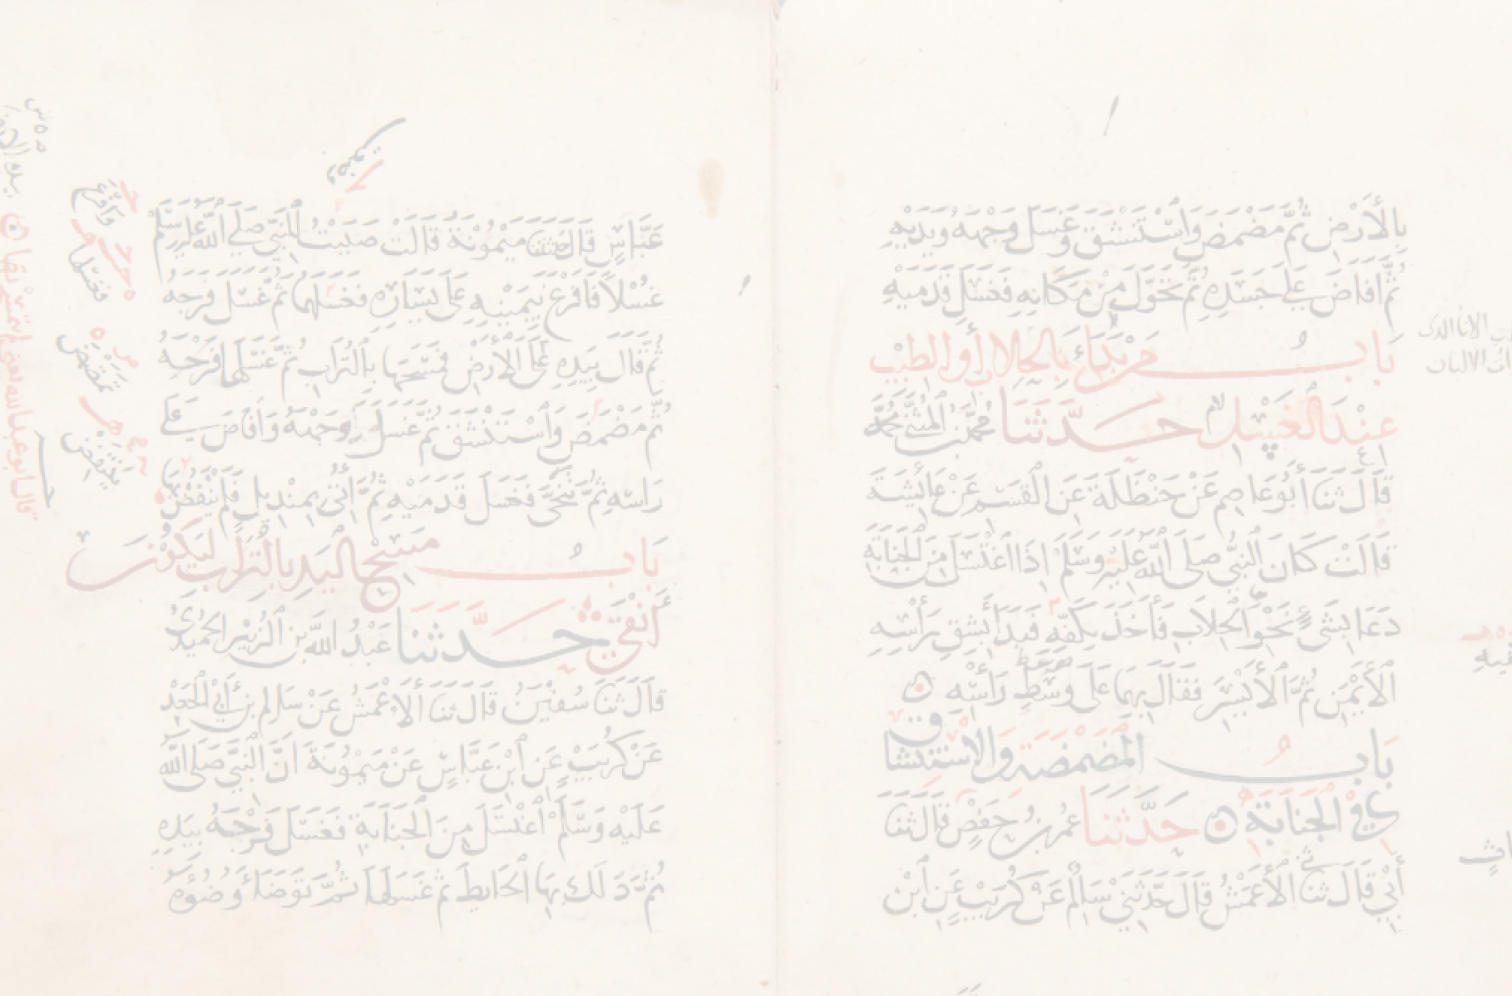 بِالأَرْضِ ثُمَّ مَضْمَضَ وَاسْتَنْشَقَ وَغَسَلَ وَجْهَهُ وَيَدَيْهِ
ثُمَّ أَفَاضَ عَلَى جَسَدِهِ ثُمَّ تَحَوَّلَ مِنْ مَكَانِهِ فَغَسَلَ قَدَمَيْهِ
بَابُ مَنْ بَدَأَ بِالحِلابِ أَوِ الطِّيبِ
عِنْدَ الغُسْلِ حَدَّثَنَا مُحَمَّدُ بْنُ المُثَنَّى
قَالَ ثَنَا أَبُو عَاصِمٍ عَنْ حَنْظَلَةَ عَنِ القَسِمِ عَنْ عَائِشَةَ
قَالَتْ كَانَ النَّبِيُّ صَلَّى اللَّهُ عَلَيْهِ وَسَلَّمَ إِذَا اغْتَسَلَ مِنَ الجَنَابَةِ
دَعَا بِشَيْءٍ نَحْوَ الحِلابِ فَأَخَذَ بِكَفِّهِ فَبَدَأَ بِشِقِّ رَأْسِهِ
الأَيْمَنِ ثُمَّ الأَيْسَرِ فَقَالَ بِهِمَا عَلَى وَسَطِ رَأْسِهِ
بَابُ المَضْمَضَةِ وَالاسْتِنْشَاقِ
فِي الجَنَابَةِ حَدَّثَنَا عُمَرُ بْنُ حَفْصٍ قَالَ ثَنَا
أَبِي قَالَ ثَنَا الأَعْمَشُ قَالَ حَدَّثَنِي سَالِمٌ عَنْ كُرَيْبٍ عَنِ ابْنِ
عَبَّاسٍ قَالَ حَدَّثَتْنَا مَيْمُونَةُ قَالَتْ صَبَبْتُ لِلنَّبِيِّ صَلَّى اللَّهُ عَلَيْهِ وَسَلَّمَ
غُسْلاً فَأَفْرَغَ بِيَمِينِهِ عَلَى يَسَارِهِ فَغَسَلَهُمَا ثُمَّ غَسَلَ فَرْجَهُ
ثُمَّ قَالَ بِيَدِهِ عَلَى الأَرْضِ فَمَسَحَهَا بِالتُّرَابِ ثُمَّ غَسَلَهَا
ثُمَّ مَضْمَضَ وَاسْتَنْشَقَ ثُمَّ غَسَلَ وَجْهَهُ وَأَفَاضَ عَلَى
رَأْسِهِ ثُمَّ تَنَحَّى فَغَسَلَ قَدَمَيْهِ ثُمَّ أُتِيَ بِمِنْدِيلٍ فَلَمْ يَنْفُضْ
بَابُ مَسْحِ اليَدِ بِالتُّرَابِ لِيَكُونَ
أَنْقَى حَدَّثَنَا عَبْدُ اللَّهِ بْنُ الزُّبَيْرِ الحُمَيْدِيُّ
قَالَ ثَنَا سُفْيَنُ قَالَ ثَنَا الأَعْمَشُ عَنْ سَالِمِ بْنِ أَبِي الجَعْدِ
عَنْ كُرَيْبٍ عَنِ ابْنِ عَبَّاسٍ عَنْ مَيْمُونَةَ أَنَّ النَّبِيَّ صَلَّى اللَّهُ
عَلَيْهِ وَسَلَّمَ اغْتَسَلَ مِنَ الجَنَابَةِ فَغَسَلَ فَرْجَهُ بِيَدِهِ
ثُمَّ دَلَكَ بِهَا الحَائِطَ ثُمَّ غَسَلَهَا ثُمَّ تَوَضَّأَ وُضُوءَهُ